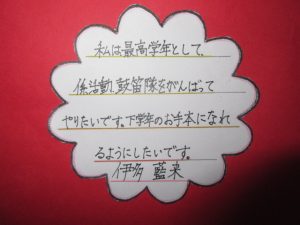 私は最高学年として、
係活動、鼓笛隊をがんばって
やりたいです。下学年のお手本になれ
るようにしたいです。
伊多 藍来